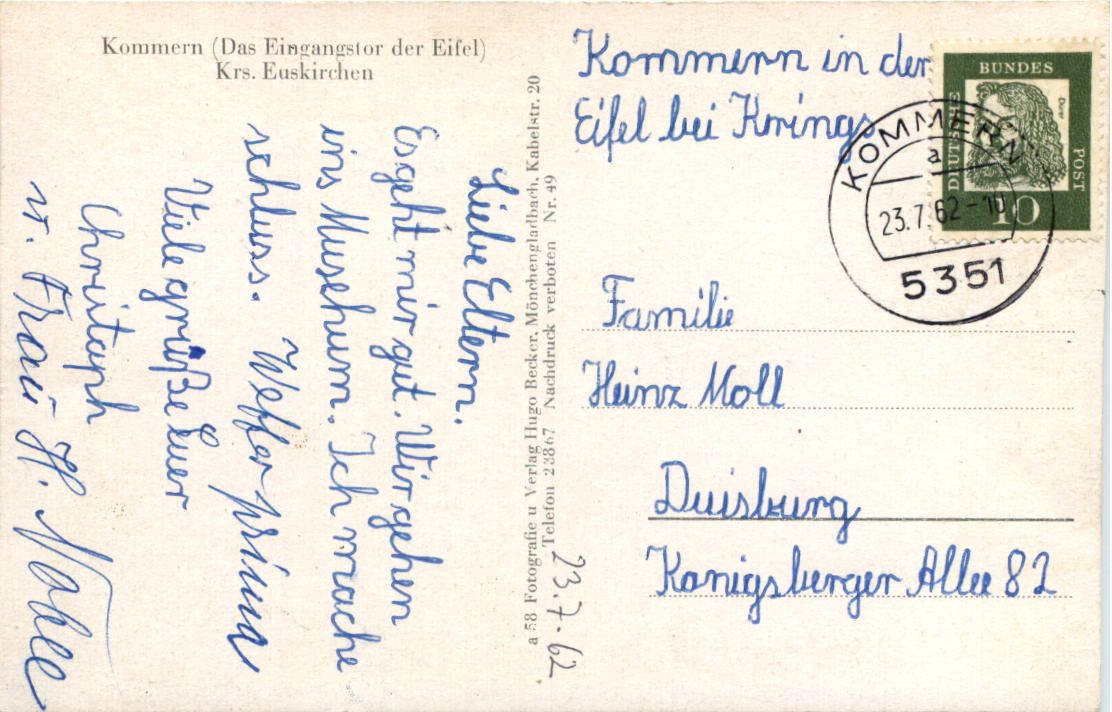 Kommern (Das Eingangstor der Eifel)
Krs. Euskirchen
Liebe Eltern.
Es geht mir gut. Wir gehen
ins Musehum. Ich mache
schluss. Wetter prima
Viele grüße Euer
Christoph
u. Frau H.
a 58 Fotografie u Verlag Hugo Becker, Mönchengladbach, Kabelstr. 20
Telefon 23867 Nachdruck verboten Nr. 49
23.7.62
Kommern in der
Eifel bei Krings
DEUTSCHE
BUNDES
POST
Dürer
10
KOMMERN
a
23.7.62-10
5351
Familie
Heinz Moll
Duisburg
Konigsberger Allee 82